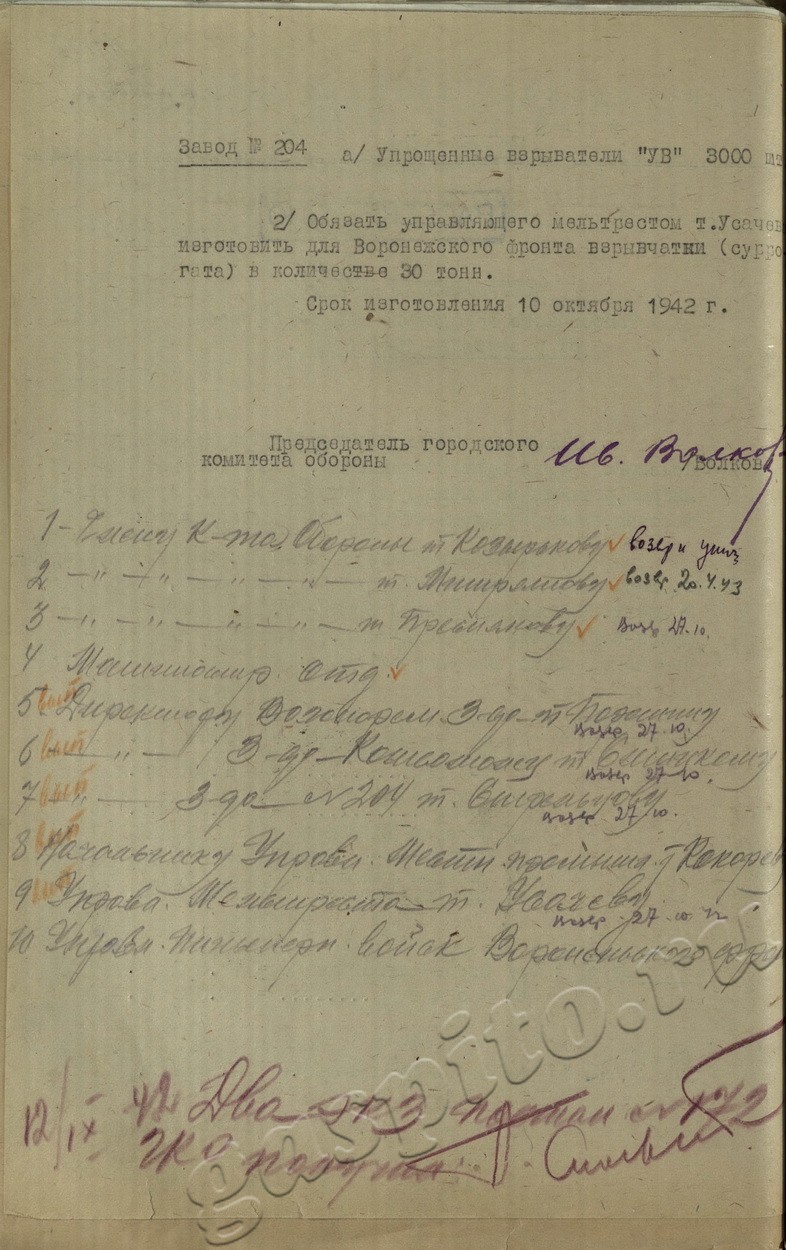 Завод № 204 а/ Упрощенные взрыватели "УВ" 3000 шт
2/ Обязать управляющего мельтрестом т.Усачев
изготовить для Воронежского фронта взрывчатки (сурро
гата) в количестве 30 тонн.
Срок изготовления 10 октября 1942 г.
Председатель городского
комитета обороны
Ив. Волков
/Волков
1 - Члену К-та Обороны т Козырькову возвр и унич
2 — " — " — " — " — т. возвр 20.4.43
3 — " — " — " — " — т возвр 27.10.
4 Машиностр. отд.
5 вып Директору з-да т
возвр. 27.10.
6 вып — " — З-да Комсомолец т
возвр 27-10.
7 вып — " — з-да № 204 т.
возвр 27.10.
8 вып Начальнику Управл. Местн промышл. т Кокорев
9 вып Управл. Мельтреста т. Усачеву
возвр 27 10
10 Управл. инженерн. войск Воронежского фр
12/IX 42 Два экз постан № 172
ГКО получил
gaspito.ru